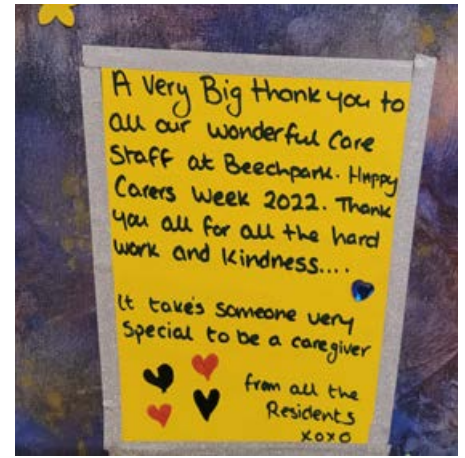 A Very Big thank you to
all our wonderful Care
Staff at Beechpark. Happy
Carers Week 2022. Thank
you all for all the hard
work and Kindness....
It take's someone very
Special to be a caregiver
from all the
Residents
xoxo